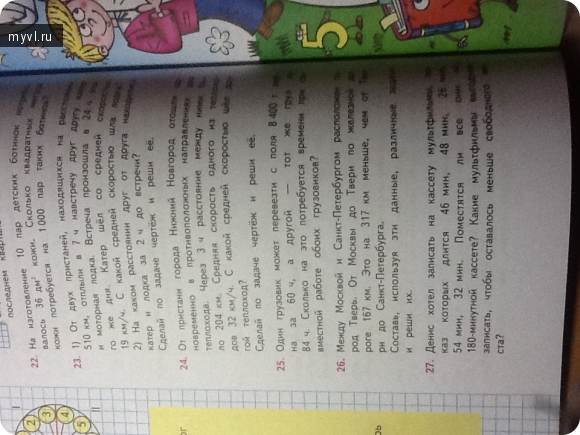 myvl.ru
5
последнем
22. На изготовление 10 пар детских ботинок
пошло 36 дм² кожи. Сколько квадратных
кожи потребуется на 1000 пар таких ботинок?
23. 1) От двух пристаней, находящихся на
510 км, отплыли в 7 ч навстречу друг другу
и моторная лодка. Встреча произошла в 24 ч
го же дня. Катер шёл со средней
19 км/ч. С какой средней скоростью шла
2) На каком расстоянии друг от друга
катер и лодка за 2 ч до встречи?
Сделай по задаче чертёж и реши её.
24. От пристани города Нижний Новгород отошли
новременно в противоположных направлениях
теплохода. Через 3 ч расстояние между ними
ло 204 км. Средняя скорость одного из
дов 32 км/ч. С какой средней скоростью шёл
гой теплоход?
Сделай по задаче чертёж и реши её.
25. Один грузовик может перевезти с поля 8 400 т
на за 60 ч, а другой — тот же груз
84 ч. Сколько на это потребуется времени при
вместной работе обоих грузовиков?
26. Между Москвой и Санкт-Петербургом расположен
род Тверь. От Москвы до Твери по железной
роге 167 км. Это на 317 км меньше, чем от
ри до Санкт-Петербурга.
Составь, используя эти данные, различные
и реши их.
27. Денис хотел записать на кассету мультфильмы,
каз которых длится 46 мин, 48 мин, 26
54 мин, 32 мин. Поместятся ли все они
180-минутной кассете? Какие мультфильмы
записать, чтобы оставалось меньше свободного
ста?
2
3
4
5